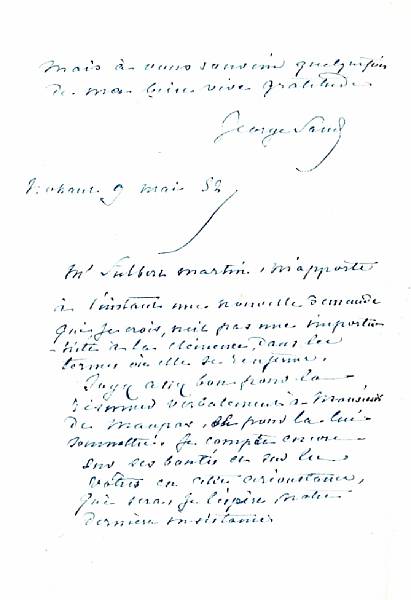 mais à vous souvenir quelquefois
de ma bien vive gratitude
George Sand
Nohant 9 mai 52
Mr Sulbert martin, m'apporte
à l'instant une nouvelle demande
qui, je crois, n'est pas une importu
-nité à la clémence, dans les
termes où elle se renferme.
Jugez assez bon pour la
résumer verbalement à Monsieur
de Maupas, et pour la lui
soumettre. Je compte encore
sur ses bontés et sur les
vôtres en cette circonstance,
qui sera, je l'espère, notre
dernière instance